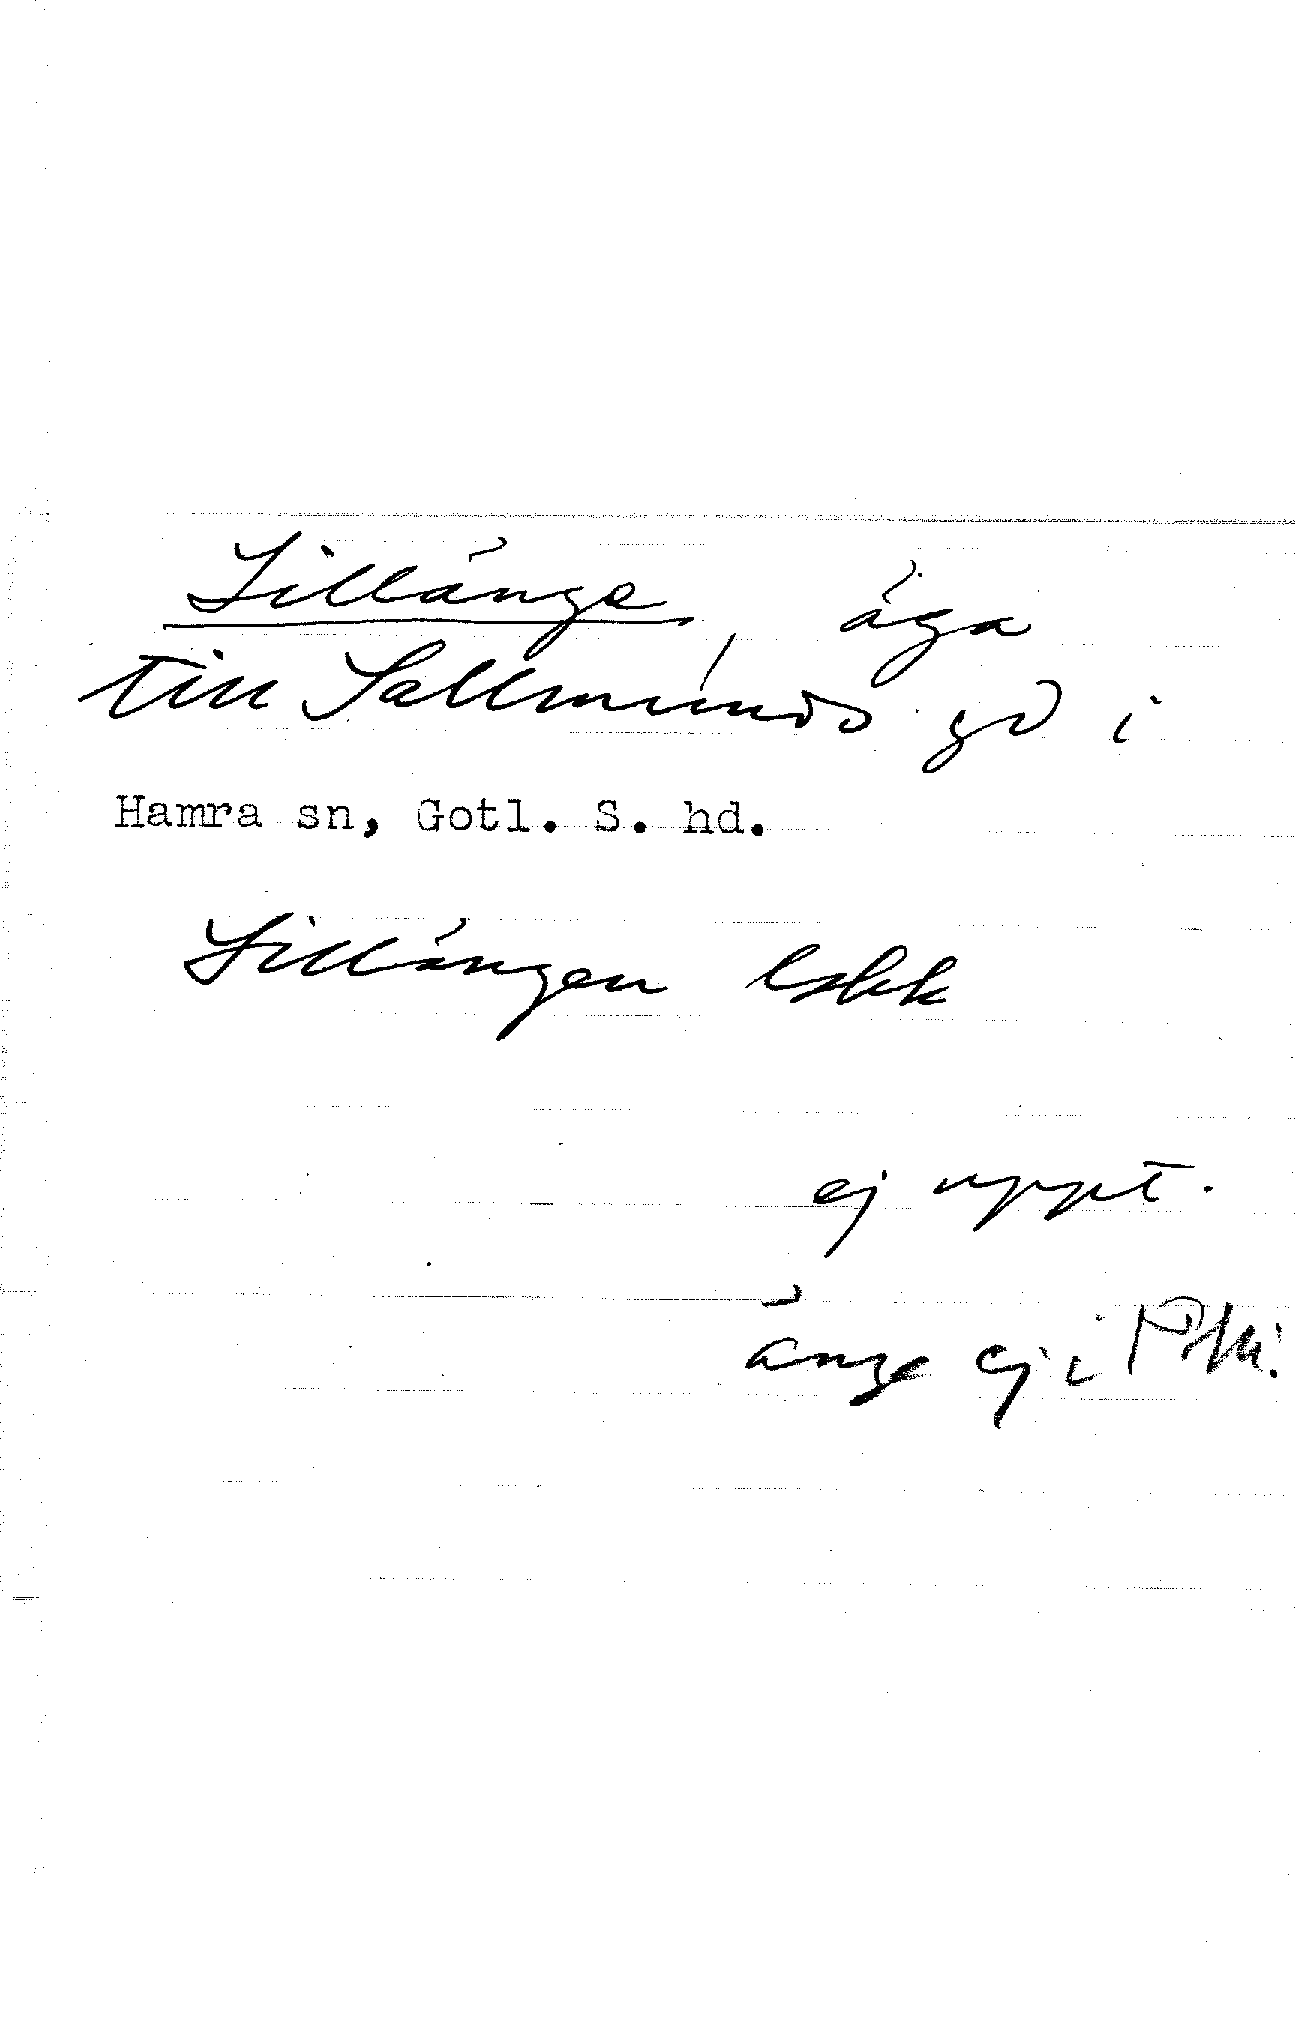 Lillänge, äga
till Sallmunds gd i
Hamra sn, Gotl. S. hd.
Lillängen
ej uppt.
änge ej i